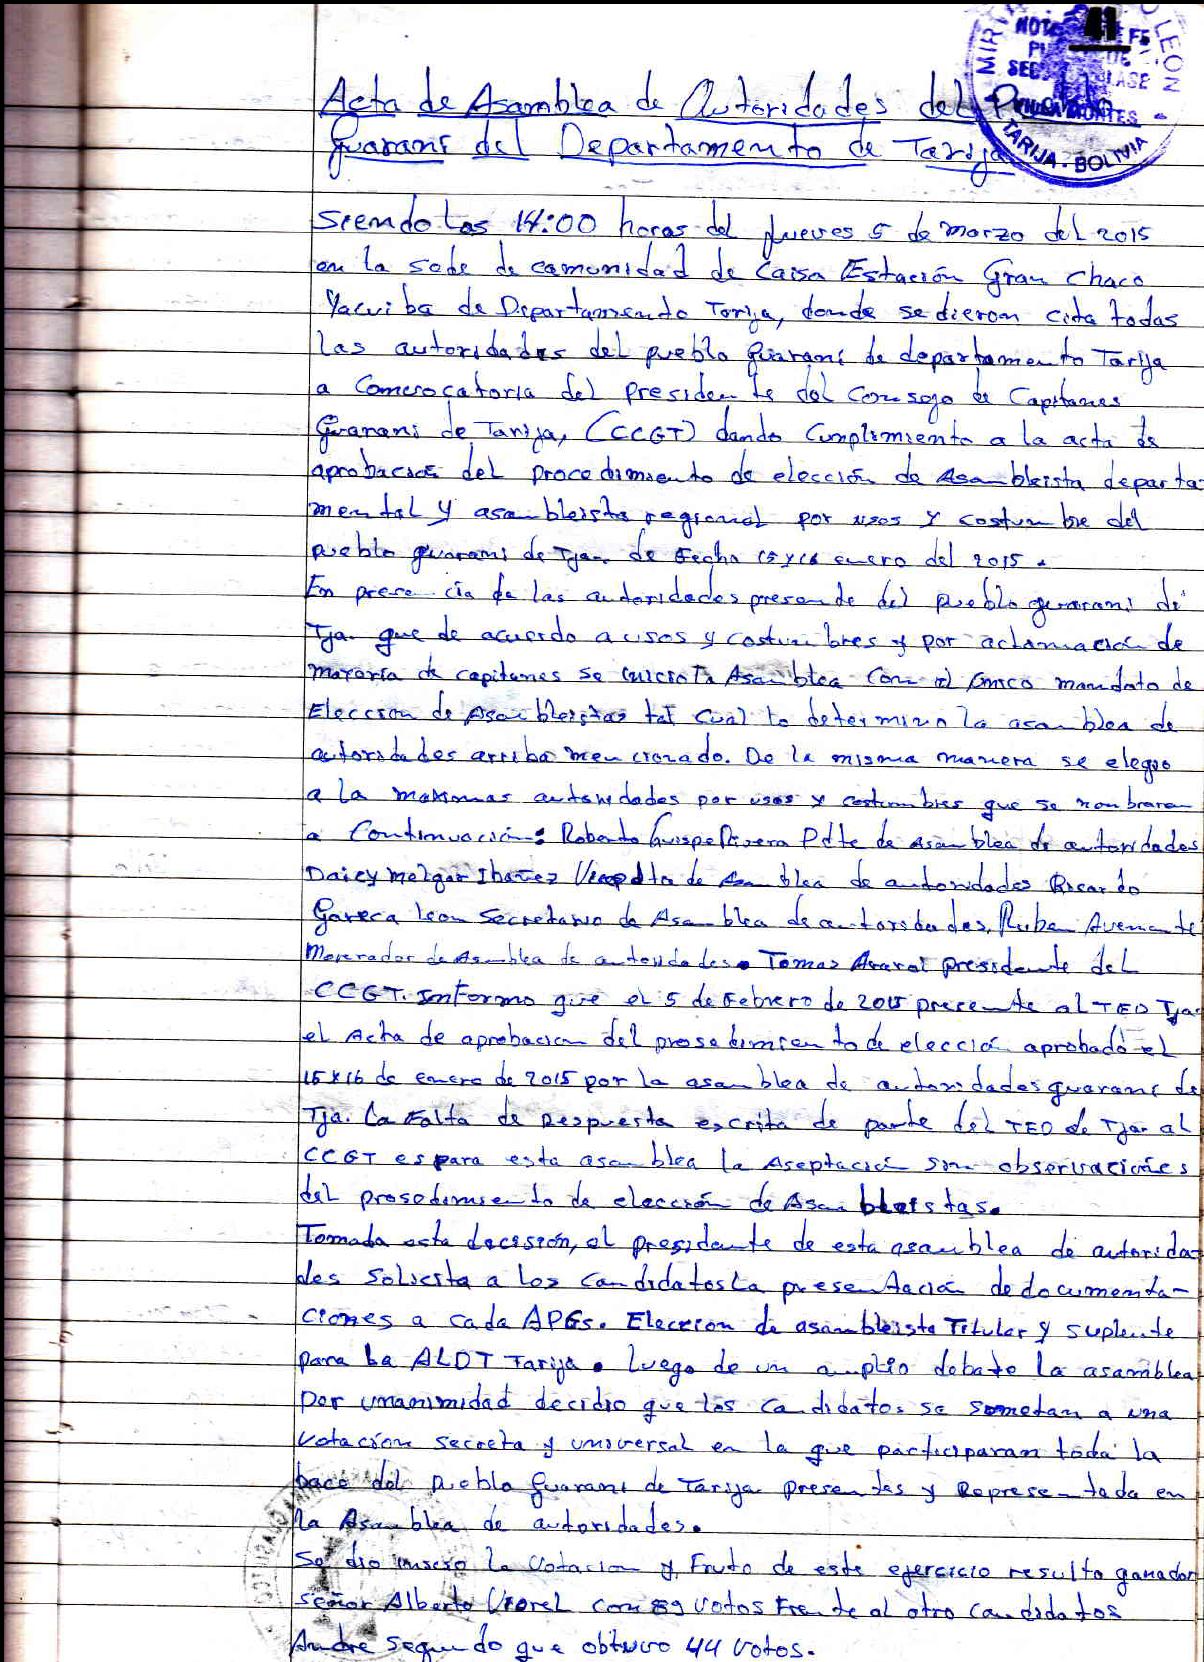 MIR LEON
41
NOT FE
P DE
SEG LASE
MONTES
TARIJA - BOLIVIA
Acta de Asamblea de Autoridades del P
Guaraní del Departamento de Tarija
Siendo Las 14:00 horas del Jueves 5 de Marzo del 2015
en la sede de comunidad de Caisa Estación Gran Chaco
Yacuiba de Departamento Tarija, donde se dieron cita todas
las autoridades del pueblo Guaraní de departamento Tarija
a Convocatoria del presidente del Consejo de Capitanes
Guarani de Tarija, (CCGT) dando Cumplimiento a la acta de
aprobación del procedimiento de elección de Asambleista departa-
mental y asambleista regional por usos y costumbre del
pueblo guarani de Tja. de Fecha 15 y 16 enero del 2015.
En presencia de las autoridades presente del pueblo guarani de
Tja. que de acuerdo a usos y costumbres y por aclamación de
mayoría de capitanes se inicio la Asamblea Con el único mandato de
Elección de Asambleistas tal cual lo determino la asamblea de
autoridades arriba mencionado. De la misma manera se elegio
a la maximas autoridades por usos y costumbres que se nombraran
a Continuación: Roberto Quispe Rivera Pdte de Asamblea de autoridades
Daicy Melgar Ibañez Vicepdta de Asamblea de autoridades Ricardo
Gareca leon Secretario de Asamblea de autoridades, Ruben Avenante
Moderador de Asamblea de autoridades. Tomas Araroi presidente del
CCGT. Informo que el 5 de Febrero de 2015 presente al TED Tja.
el Acta de aprobacion del prosedimiento de elección aprobado el
15 y 16 de enero de 2015 por la asamblea de autoridades guarani de
Tja. La Falta de Respuesta escrita de parte del TED de Tja. al
CCGT es para esta asamblea la Aseptación sin observaciones
del prosedimiento de elección de Asambleistas.
Tomada esta decisión, el presidente de esta asamblea de autorida-
des Solicita a los Candidatos La presentación de documenta-
ciones a cada APGs. Eleccion de asambleista Titular y suplente
para La ALDT Tarija. Luego de un amplio debate la asamblea
por unanimidad decidio que los candidatos se sometan a una
votación secreta y universal en la que participaran toda la
bace del pueblo Guarani de Tarija presentes y Representada en
la Asamblea de autoridades.
Se dio inicio la votacion y Fruto de este ejercicio resulto ganador
señor Alberto con 89 votos Frente al otro candidatos
Andre segundo que obtuvo 44 votos.